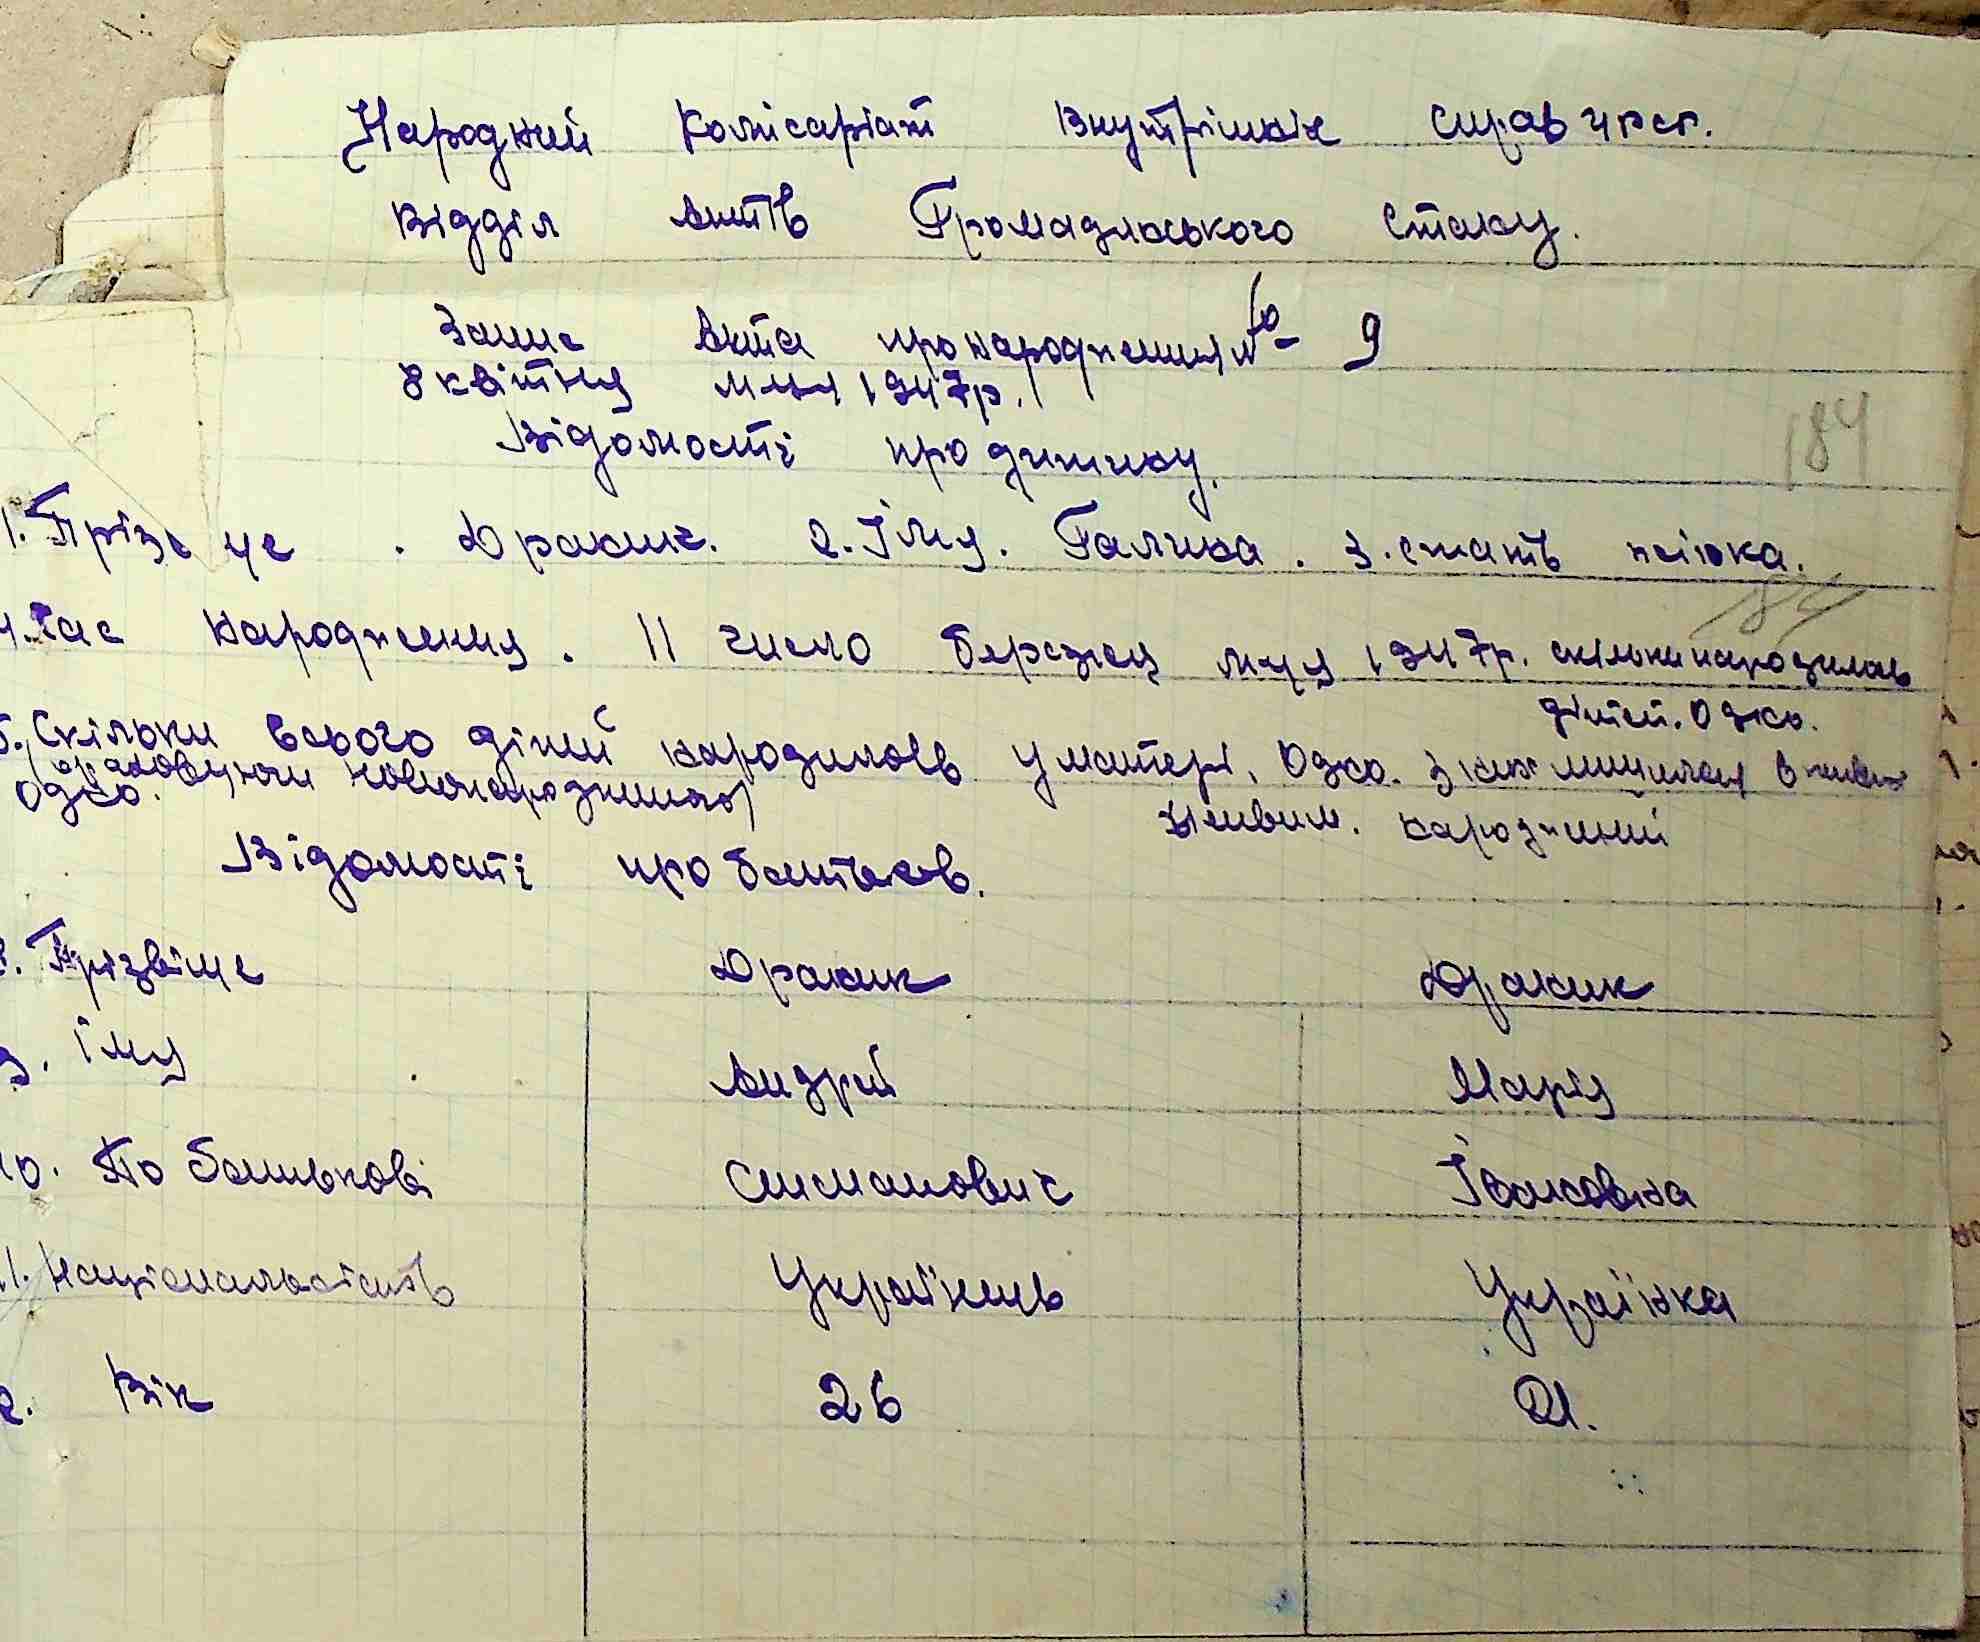 Народний Комісаріат Внутрішніх справ УРСР.
Відділ Актів Громадянського Стану.
Запис Акта про народження № 9
8 квітня м-ця 1947р.
Відомості про дитину.
184
1. Прізв ще . 2. Імя. Галина. 3. стать жіюка.
84
4. Час народження. 11 число березня м-ця 1947р. скільки народилось
дітей. Одно.
5. Скільки всього дітей народилось у матері. Одно. З них лишилися в живих
Одно. новонародженного
народжений
Відомості про батьків.
Прізвіще Драник Драник
Імя Андрій Марія
10. По батькові Івановна
11. Національність Українець Українка
2. Вік 26 21.